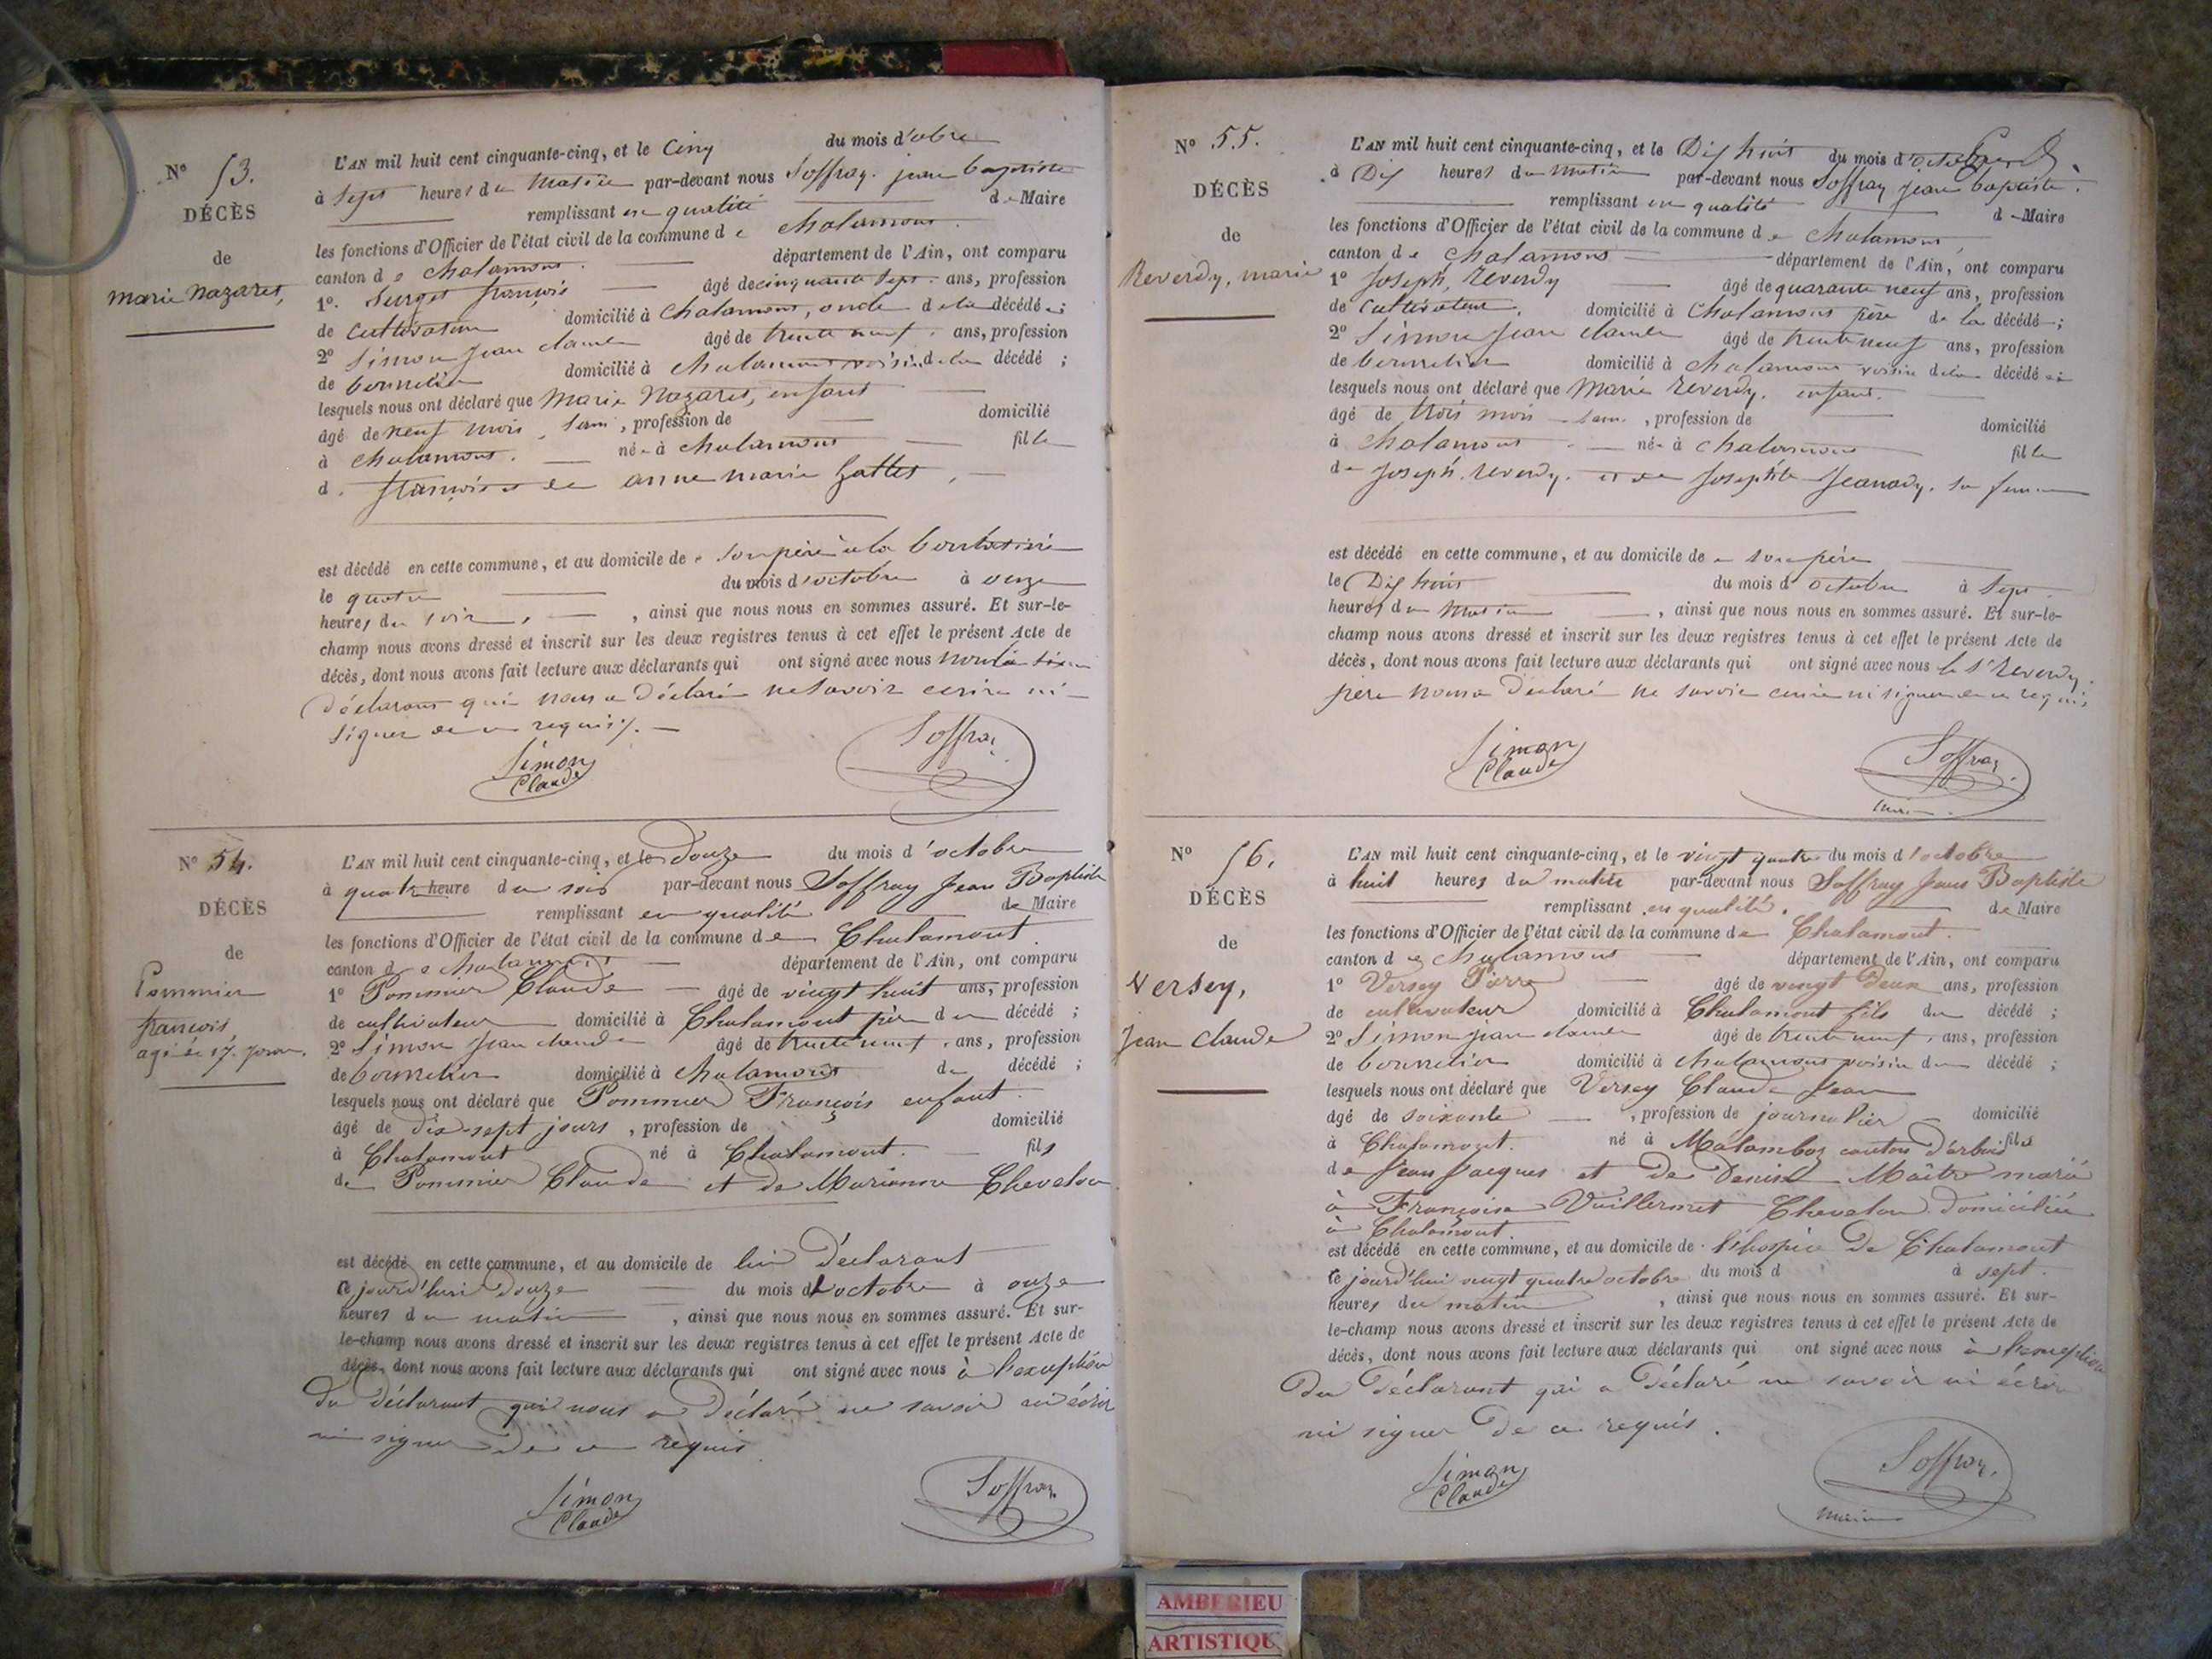 N° 53.
DÉCÈS
de
marie nazaret,
L'AN mil huit cent cinquante-cinq, et le Cinq du mois d'obre
à Sept heures du Matin par-devant nous Soffray jean baptiste
remplissant en qualité de Maire
les fonctions d'Officier de l'état civil de la commune de chalamont
canton de chalamont département de l'Ain, ont comparu
1°. françois âgé de cinquante sept ans, profession
de cultivateur domicilié à chalamont, oncle de la décédée;
2° Simon jean claude âgé de trente neuf ans, profession
de bourrelier domicilié à chalamont voisin de la décédé ;
lesquels nous ont déclaré que Marie Nazaret, enfant
âgé de neuf mois , profession de domicilié
à chalamont. née à chalamont fille
d. françois et de anne marie
est décédé en cette commune, et au domicile de son père à la
le quatre du mois d'octobre à onze
heures du soir, , ainsi que nous nous en sommes assuré. Et sur-le-
champ nous avons dressé et inscrit sur les deux registres tenus à cet effet le présent Acte de
décès, dont nous avons fait lecture aux déclarants qui ont signé avec nous
déclarant qui nous a déclaré ne savoir ecrire ni
signer de ce requis
Simon
Claude
Soffray
N° 54.
DÉCÈS
de
Pommier
françois
agé de 17 jours.
L'AN mil huit cent cinquante-cinq, et le douze du mois d'octobre
à quatre heure du soir par-devant nous Soffray Jean Baptiste
remplissant en qualité de Maire
les fonctions d'Officier de l'état civil de la commune de Chalamont
canton de chalamont département de l'Ain, ont comparu
1° Pommier Claude âgé de vingt huit ans, profession
de cultivateur domicilié à Chalamont père du décédé ;
2° Simon jean claude âgé de trente neuf ans, profession
de bourrelier domicilié à chalamont du décédé ;
lesquels nous ont déclaré que Pommier François enfant
âgé de dix-sept jours , profession de domicilié
à Chalamont né à Chalamont. fils
de Pommier Claude et de Marianne Chevelon
est décédé en cette commune, et au domicile de lui Déclarant
ce jourd'hui douze du mois d'octobre à onze
heures du matin , ainsi que nous nous en sommes assuré. Et sur-
le-champ nous avons dressé et inscrit sur les deux registres tenus à cet effet le présent Acte de
décès, dont nous avons fait lecture aux déclarants qui ont signé avec nous à l'exception
du Déclarant qui nous a Déclaré ne savoir ni écrire
ni signer De ce requis
Simon
Claude
Soffray
N° 55.
DÉCÈS
de
Reverdy, marie
L'AN mil huit cent cinquante-cinq, et le Dix huit du mois d'octobre
à Dix heures du matin par-devant nous Soffray jean baptiste
remplissant en qualité de Maire
les fonctions d'Officier de l'état civil de la commune de chalamont
canton de chalamont département de l'Ain, ont comparu
1° Joseph, Reverdy âgé de quarante neuf ans, profession
de cultivateur, domicilié à Chalamont père de la décédé ;
2° Simon jean claude âgé de trente neuf ans, profession
de bourrelier domicilié à chalamont voisin de la décédée
lesquels nous ont déclaré que Marie Reverdy. enfant.
âgé de trois mois , profession de domicilié
à chalamont née à chalamont fille
de joseph. Reverdy. et de Josephte Jeanody. sa femme
est décédé en cette commune, et au domicile de son père
le Dix huit du mois d'octobre à sept
heures du matin , ainsi que nous nous en sommes assuré. Et sur-le-
champ nous avons dressé et inscrit sur les deux registres tenus à cet effet le présent Acte de
décès, dont nous avons fait lecture aux déclarants qui ont signé avec nous le s' Reverdy
père nous a déclaré ne savoir ecrire ni signer de ce requis
Simon
Claude
Soffray
N° 56.
DÉCÈS
de
Versey,
jean claude
L'AN mil huit cent cinquante-cinq, et le vingt quatre du mois d'octobre
à huit heures du matin par-devant nous Soffray Jean Baptiste
remplissant en qualité. de Maire
les fonctions d'Officier de l'état civil de la commune de Chalamont.
canton de chalamont département de l'Ain, ont comparu
1° Versey Pierre âgé de vingt Deux ans, profession
de cultivateur domicilié à Chalamont fils du décédé ;
2° Simon jean claude âgé de trente neuf ans, profession
de bourrelier domicilié à chalamont voisin du décédé ;
lesquels nous ont déclaré que Versey Claude Jean
âgé de soixante , profession de journalier domicilié
à Chalamont. né à Malamboz canton d'arbois fils
de Jean Jacques et De Denise Maître marié
à Françoise Vuillermet Chevelon Domiciliée
à Chalamont.
est décédé en cette commune, et au domicile de l'hospice De Chalamont
ce jourd'hui vingt quatre octobre du mois d à sept
heures du matin , ainsi que nous nous en sommes assuré. Et sur-
le-champ nous avons dressé et inscrit sur les deux registres tenus à cet effet le présent Acte de
décès, dont nous avons fait lecture aux déclarants qui ont signé avec nous à l'exception
Du Déclarant qui a Déclaré ne savoir ni écrire
ni signer De ce requis.
Simon
Claude
Soffray
AMBERIEU
ARTISTIQU